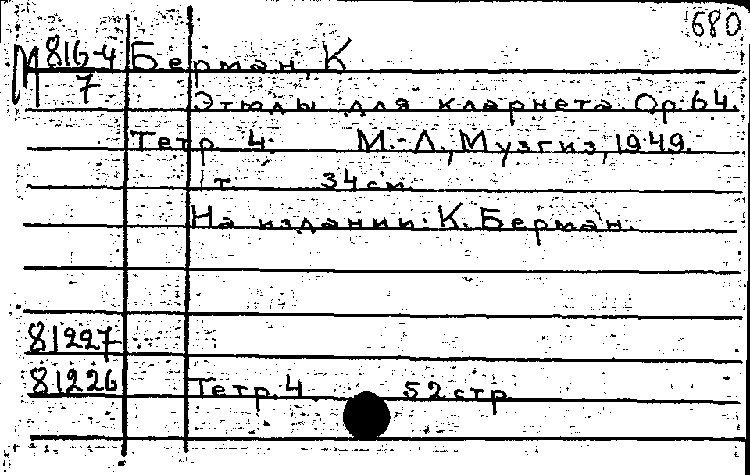 680
М 816-4 Берман, К
7 Этюды для кларнета. Ор. 64.
Тетр. 4. М.-Л., Музгиз, 1949.
т. 34 см.
На издании: К. Берман.
81227
81226 Тетр. 4. 52 стр